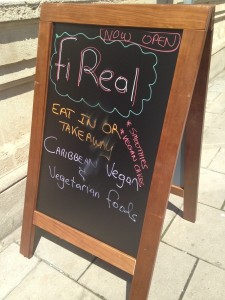 NOW OPEN
fi Real
EAT IN OR
TAKEAWAY
* SMOOTHIES
* VEGAN CAKES
CARIBBEAN Vegan
&
Vegetarian foods